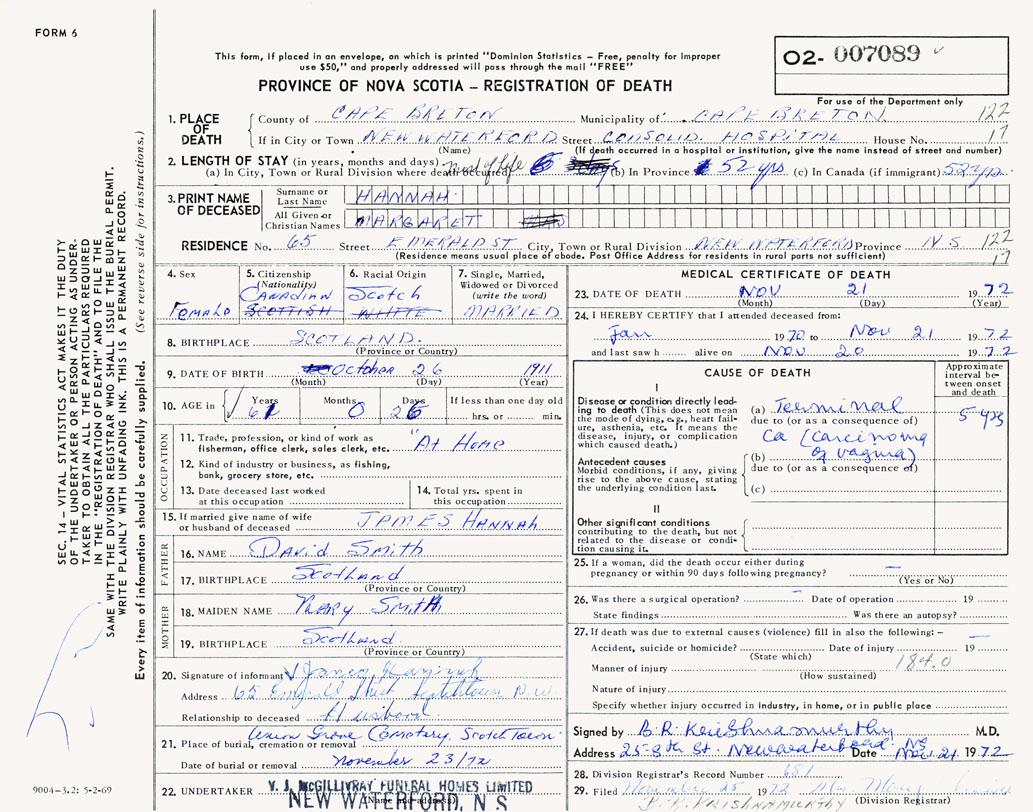 FORM 6
This form, if placed in an envelope, on which is printed "Dominion Statistics – Free, penalty for improper
use $50," and properly addressed will pass through the mail "FREE"
PROVINCE OF NOVA SCOTIA – REGISTRATION OF DEATH
02- 007089
For use of the Department only
1. PLACE OF DEATH County of CAPE BRETON Municipality of CAPE BRETON 122
If in City or Town NEW WATERFORD Street CONSOLID. HOSPITAL House No. 17
(Name) (If death occurred in a hospital or institution, give the name instead of street and number)
2. LENGTH OF STAY (in years, months and days)
(a) In City, Town or Rural Division where death occurred Most of life (b) In Province 52 yrs (c) In Canada (if immigrant) 52 yrs.
3. PRINT NAME OF DECEASED
Surname or Last Name HANNAH
All Given or Christian Names MARGARET
RESIDENCE No. 65 Street EMERALD ST City, Town or Rural Division NEW WATERFORD Province N.S. 122
(Residence means usual place of abode. Post Office Address for residents in rural parts not sufficient) 17
4. Sex Female
5. Citizenship (Nationality) CANADIAN SCOTTISH
6. Racial Origin Scotch WHITE
7. Single, Married, Widowed or Divorced (write the word) MARRIED
8. BIRTHPLACE SCOTLAND.
(Province or Country)
9. DATE OF BIRTH October 26 1911
(Month) (Day) (Year)
10. AGE in Years 61 Months 0 Days 26 If less than one day old
hrs. or min.
OCCUPATION
11. Trade, profession, or kind of work as
fisherman, office clerk, sales clerk, etc. "At Home
12. Kind of industry or business, as fishing,
bank, grocery store, etc.
13. Date deceased last worked
at this occupation
14. Total yrs. spent in
this occupation
15. If married give name of wife
or husband of deceased JAMES HANNAH
FATHER
16. NAME David Smith
17. BIRTHPLACE Scotland
(Province or Country)
MOTHER
18. MAIDEN NAME Mary Smith
19. BIRTHPLACE Scotland.
(Province or Country)
20. Signature of informant James Hannah
Address 65 N.W.
Relationship to deceased Husband.
Union Grove Cemetery, Scotch Town.
21. Place of burial, cremation or removal
Date of burial or removal November 23/72
22. UNDERTAKER V. J. McGILLIVRAY FUNERAL HOMES LIMITED
NEW WATERFORD, N S
(Name and address)
MEDICAL CERTIFICATE OF DEATH
23. DATE OF DEATH Nov 21 1972
(Month) (Day) (Year)
24. I HEREBY CERTIFY that I attended deceased from:
Jan 1970 to Nov 21 1972
and last saw h alive on Nov 20 1972
CAUSE OF DEATH
Approximate interval between onset and death
I
Disease or condition directly leading
to death (This does not mean
the mode of dying, e.g., heart failure,
asthenia, etc. It means the
disease, injury, or complication
which caused death.)
(a) Terminal 5 yrs
due to (or as a consequence of)
Ca (Carcinoma
of vagina)
Antecedent causes
Morbid conditions, if any, giving
rise to the above cause, stating
the underlying condition last.
(b)
due to (or as a consequence of)
(c)
II
Other significant conditions
contributing to the death, but not
related to the disease or condition
causing it.
25. If a woman, did the death occur either during
pregnancy or within 90 days following pregnancy? –
(Yes or No)
26. Was there a surgical operation? – Date of operation 19
State findings Was there an autopsy?
27. If death was due to external causes (violence) fill in also the following: –
Accident, suicide or homicide? Date of injury 19
(State which) 184.0
Manner of injury
(How sustained)
Nature of injury
Specify whether injury occurred in industry, in home, or in public place
Signed by B.R. Krishnamurthy M.D.
Address 25-8th St. Newwaterford NS Date Nov 21 1972
28. Division Registrar's Record Number 651
29. Filed November 25 1972
(Division Registrar)
B. R. KRISHNAMURTHY
SEC. 14 – VITAL STATISTICS ACT MAKES IT THE DUTY
OF THE UNDERTAKER OR PERSON ACTING AS UNDERTAKER
TO OBTAIN ALL THE PARTICULARS REQUIRED
IN THE "REGISTRATION OF DEATH" AND TO FILE THE
SAME WITH THE DIVISION REGISTRAR WHO SHALL ISSUE THE BURIAL PERMIT.
WRITE PLAINLY WITH UNFADING INK. THIS IS A PERMANENT RECORD.
Every item of information should be carefully supplied. (See reverse side for instructions.)
9004-3.2: 5-2-69